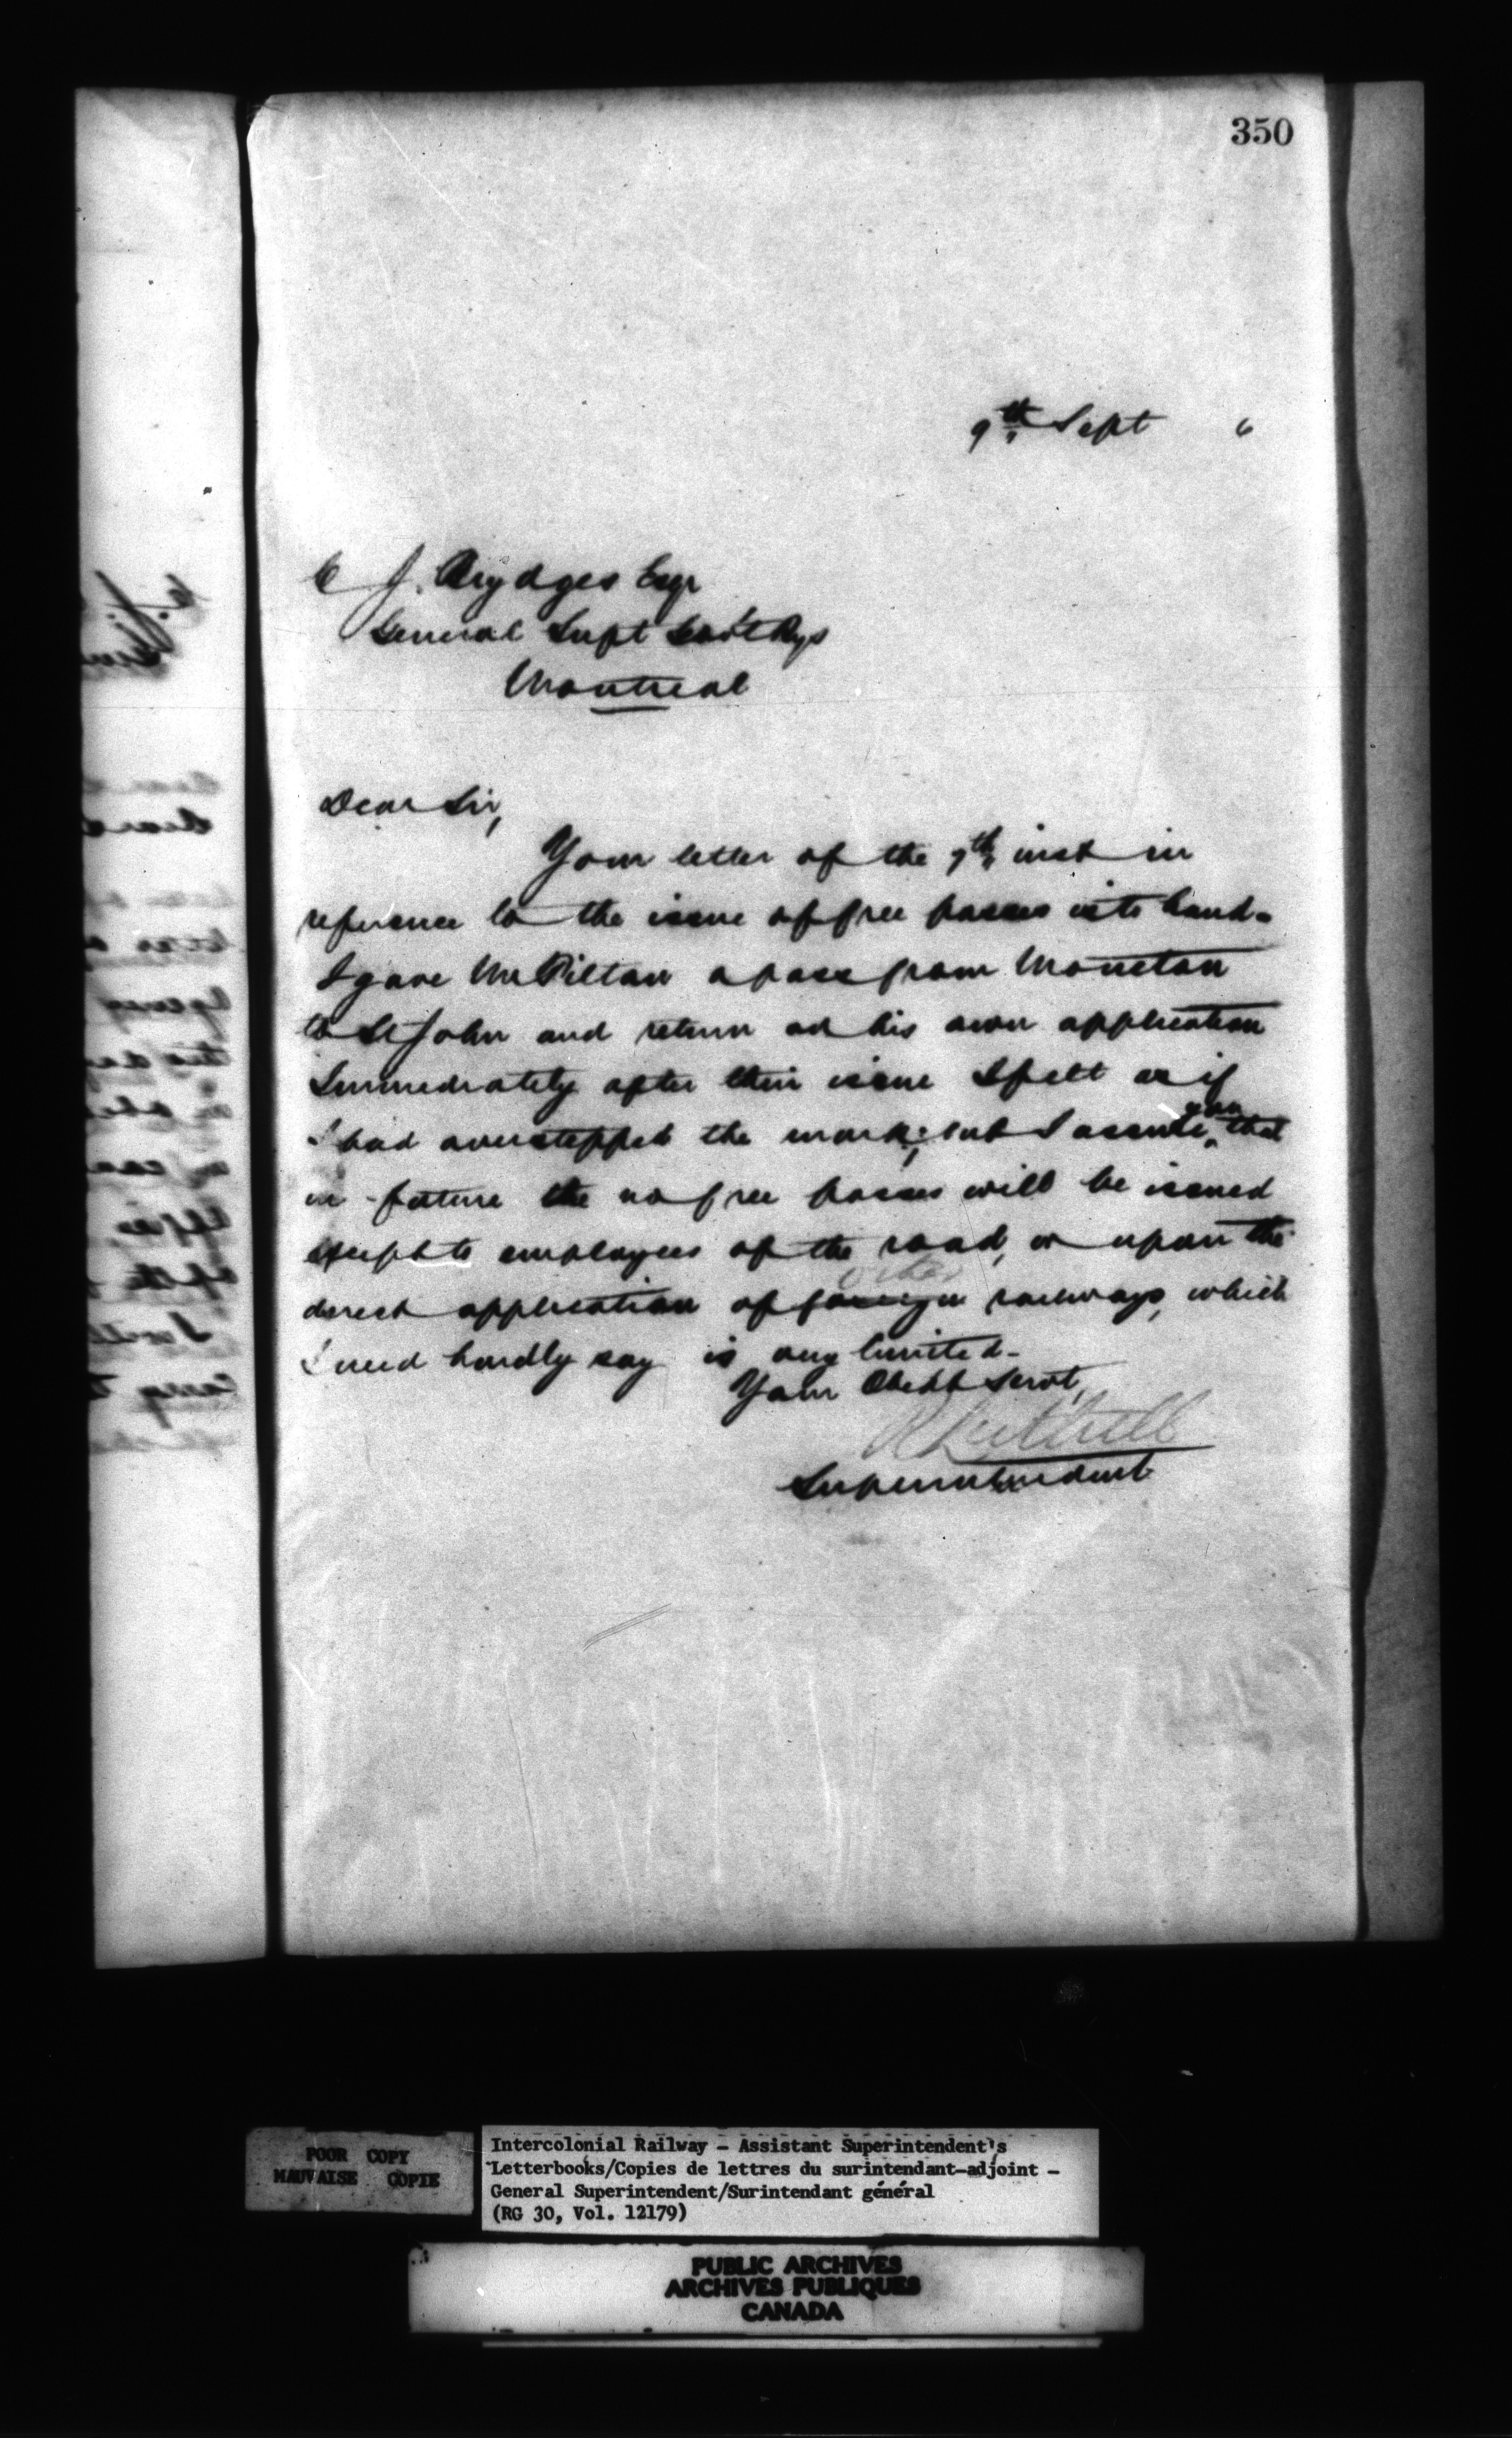 350
9th Sept 6
C J. Brydges Esqr
General Supt Govt Rys
Montreal
Dear Sir,
Your letter of the 7th inst in
reference to the issue of free passes is to hand-
I gave Mr Pilton a pass from Moncton
to St John and return on his own application
Immediately after their issue I felt as if
I had overstepped the mark; but I assure you that
in future the no free passes will be issued
except to employees of the road, or upon the
direct application of foreign other railways, which
I need hardly say is very limited-
Your Obedt Servt,
Superintendent
POOR COPY
MAUVAISE COPIE
Intercolonial Railway - Assistant Superintendent's
Letterbooks/Copies de lettres du surintendant-adjoint -
General Superintendent/Surintendant général
(RG 30, Vol. 12179)
PUBLIC ARCHIVES
ARCHIVES PUBLIQUES
CANADA